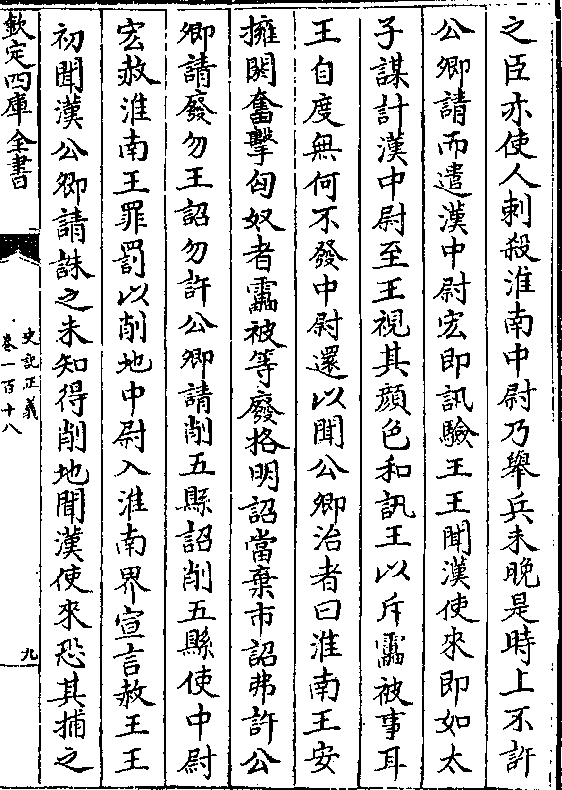 之臣亦使人刺殺淮南中尉乃舉兵未晚是時上不許
公卿請而遣漢中尉宏即訊驗王王聞漢使來即如太
子謀計漢中尉至王視其顔色和訊王以斥靁被事耳
王自度無何不發中尉還以聞公卿治者曰淮南王安
擁閼奮擊匈奴者靁被等廢格明詔當棄市詔弗許公
卿請廢勿王詔勿許公卿請削五縣詔削五縣使中尉
宏赦淮南王罪罰以削地中尉入淮南界宣言赦王王
初聞漢公卿請誅之未知得削地聞漢使來恐其捕之
欽定四庫全書
史記正義
卷一百十八
九